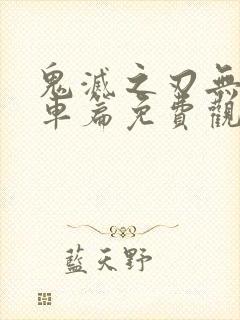 鬼滅之刃無
車篇免費觀
藍天野